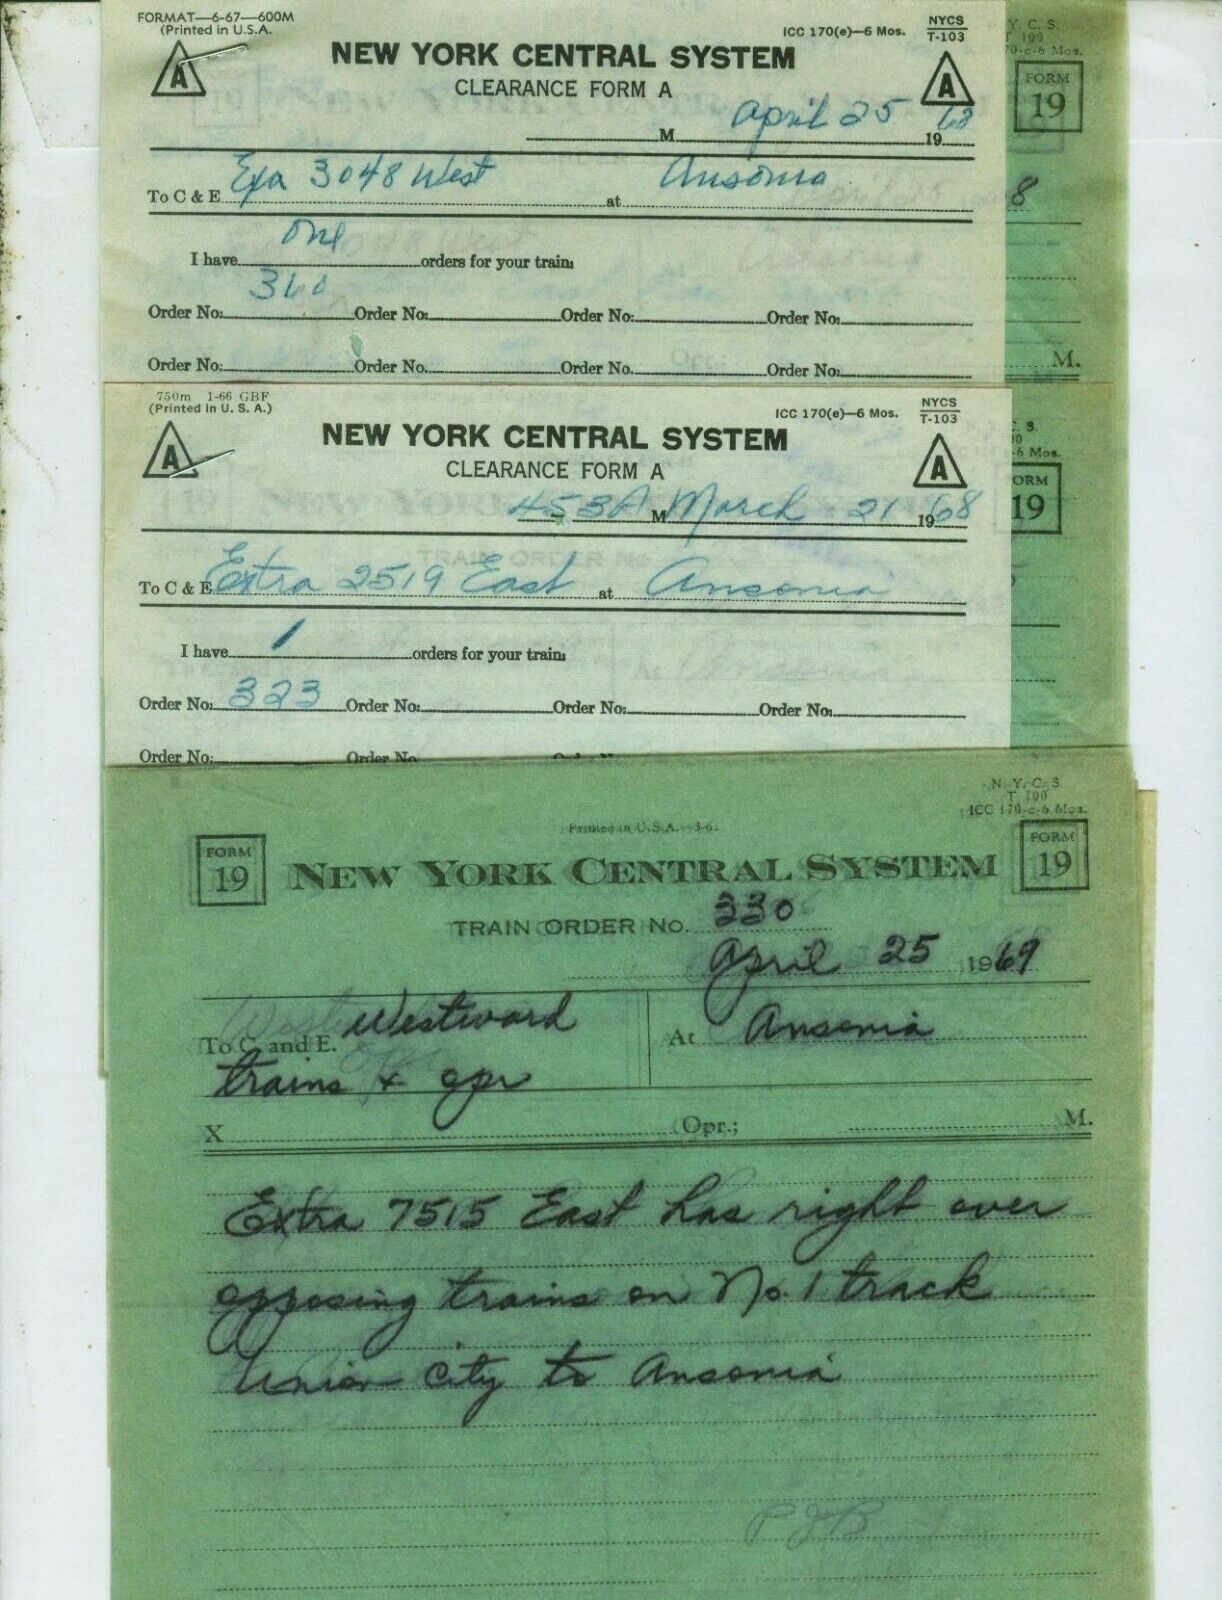 FORMAT—6-67—600M
(Printed in U.S.A.
ICC 170(e)—6 Mos.
NYCS
T-103
A
NEW YORK CENTRAL SYSTEM
A
CLEARANCE FORM A
M April 25 1968
To C & E Exa 3048 West at Ansonia
I have one orders for your train:
360
Order No: Order No: Order No: Order No:
Order No: Order No. Order No: Order No:
Y. C. S.
T 100
70-c-6 Mos.
FORM
19
8
M.
750m 1-66 GBF
(Printed in U. S. A.)
ICC 170(e)—6 Mos.
NYCS
T-103
A
NEW YORK CENTRAL SYSTEM
A
CLEARANCE FORM A
453A M March 21 1968
To C & E Extra 2519 East at Ansonia
I have 1 orders for your train:
Order No: 323 Order No: Order No: Order No:
Order No: Order No
S.
-6 Mos.
ORM
19
N. Y. C. S.
T 100
ICC 170-c-6 Mos.
Printed in U.S.A.
FORM
19
NEW YORK CENTRAL SYSTEM
FORM
19
TRAIN ORDER NO. 330
April 25 1969
To C. and E. Westward
At Ansonia
trains & opr
X Opr.; M.
Extra 7515 East has right over
opposing trains on No. 1 track
Union City to Ansonia
PJB